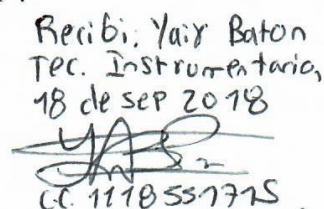 Recibi: Yair Baton
Tec. Instrumentario,
18 de sep 2018
C.C. 1118551715